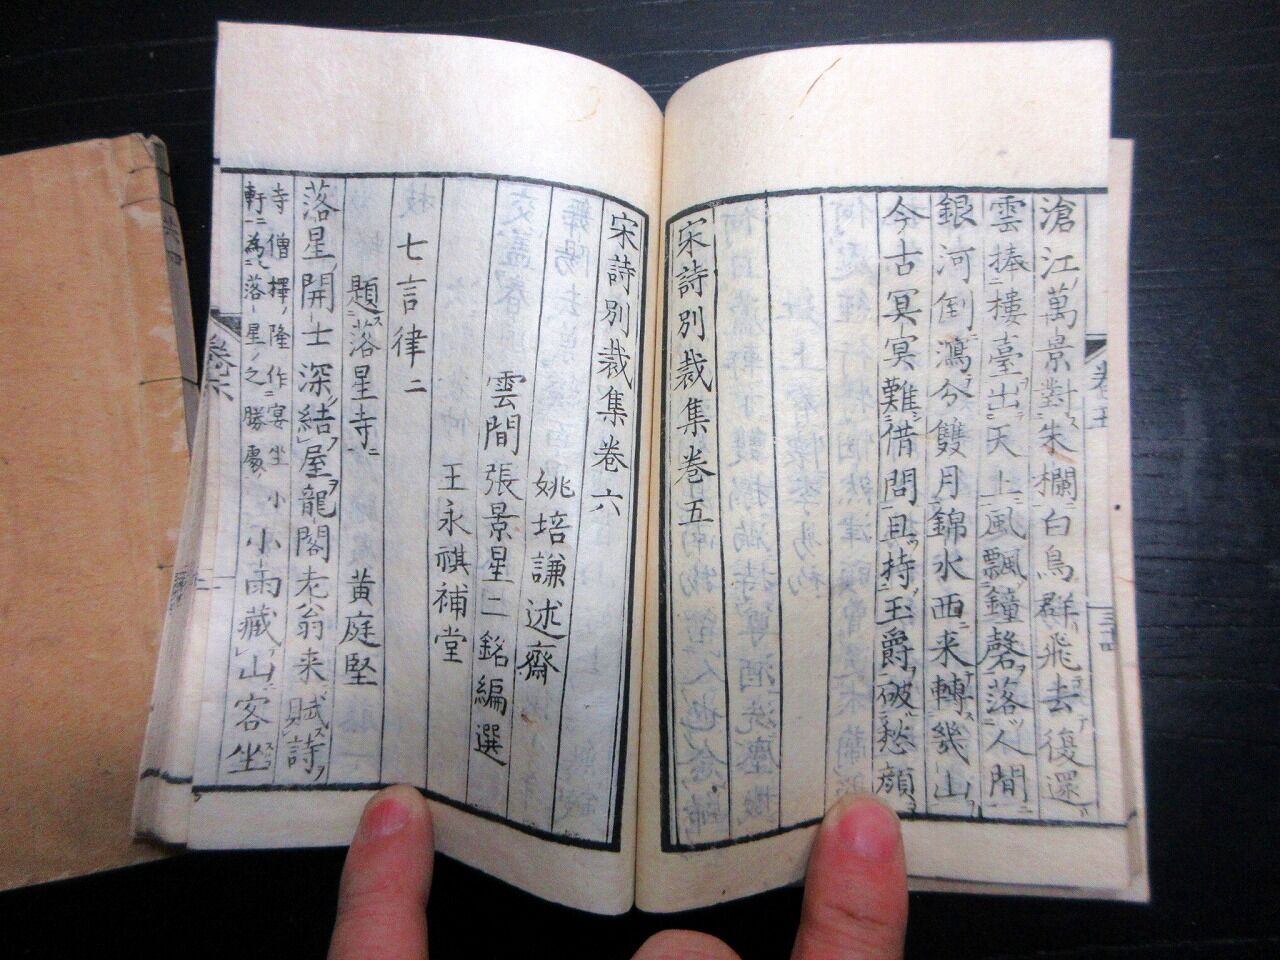 滄江萬景對朱欄白鳥群飛去復還
雲捧樓臺出天上風飄鐘磬落人間
銀河倒瀉分雙月錦水西来轉幾山
今古冥冥難借問且持玉爵破愁顔
宋詩別裁集卷五
卷五
三十四
宋詩別裁集卷六
姚培謙述齋
雲間張景星二銘編選
王永祺補堂
七言律二
題落星寺 黄庭堅
落星開士深結屋龍閣老翁来賦詩
寺僧擇隆作宴坐小
軒為落星之勝處
小雨藏山客坐
卷六